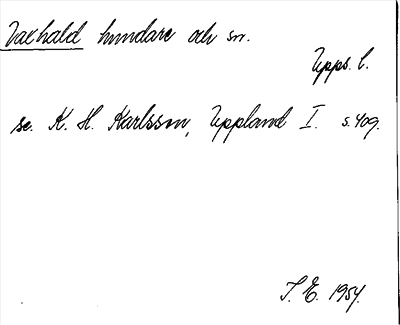 Vaxhald hundare och sn.
Upps. l.
se. K. H. Karlsson, Uppland I. s. 409.
I. E. 1954.